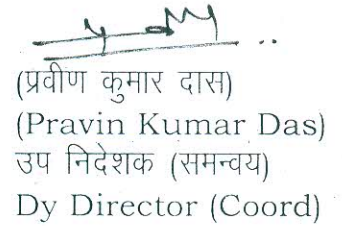 (प्रवीण कुमार दास)
(Pravin Kumar Das)
उप निदेशक (समन्वय)
Dy Director (Coord)